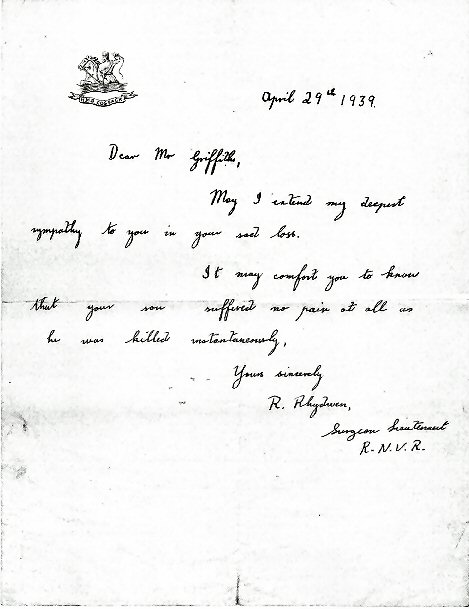 H.M.S. COSSACK
April 29th 1939.
Dear Mr Griffiths,
May I extend my deepest
sympathy to you in your sad loss.
It may comfort you to know
that your son suffered no pain at all as
he was killed instantaneously.
Yours sincerely
R. Rhydwen,
Surgeon Lieutenant
R.N.V.R.